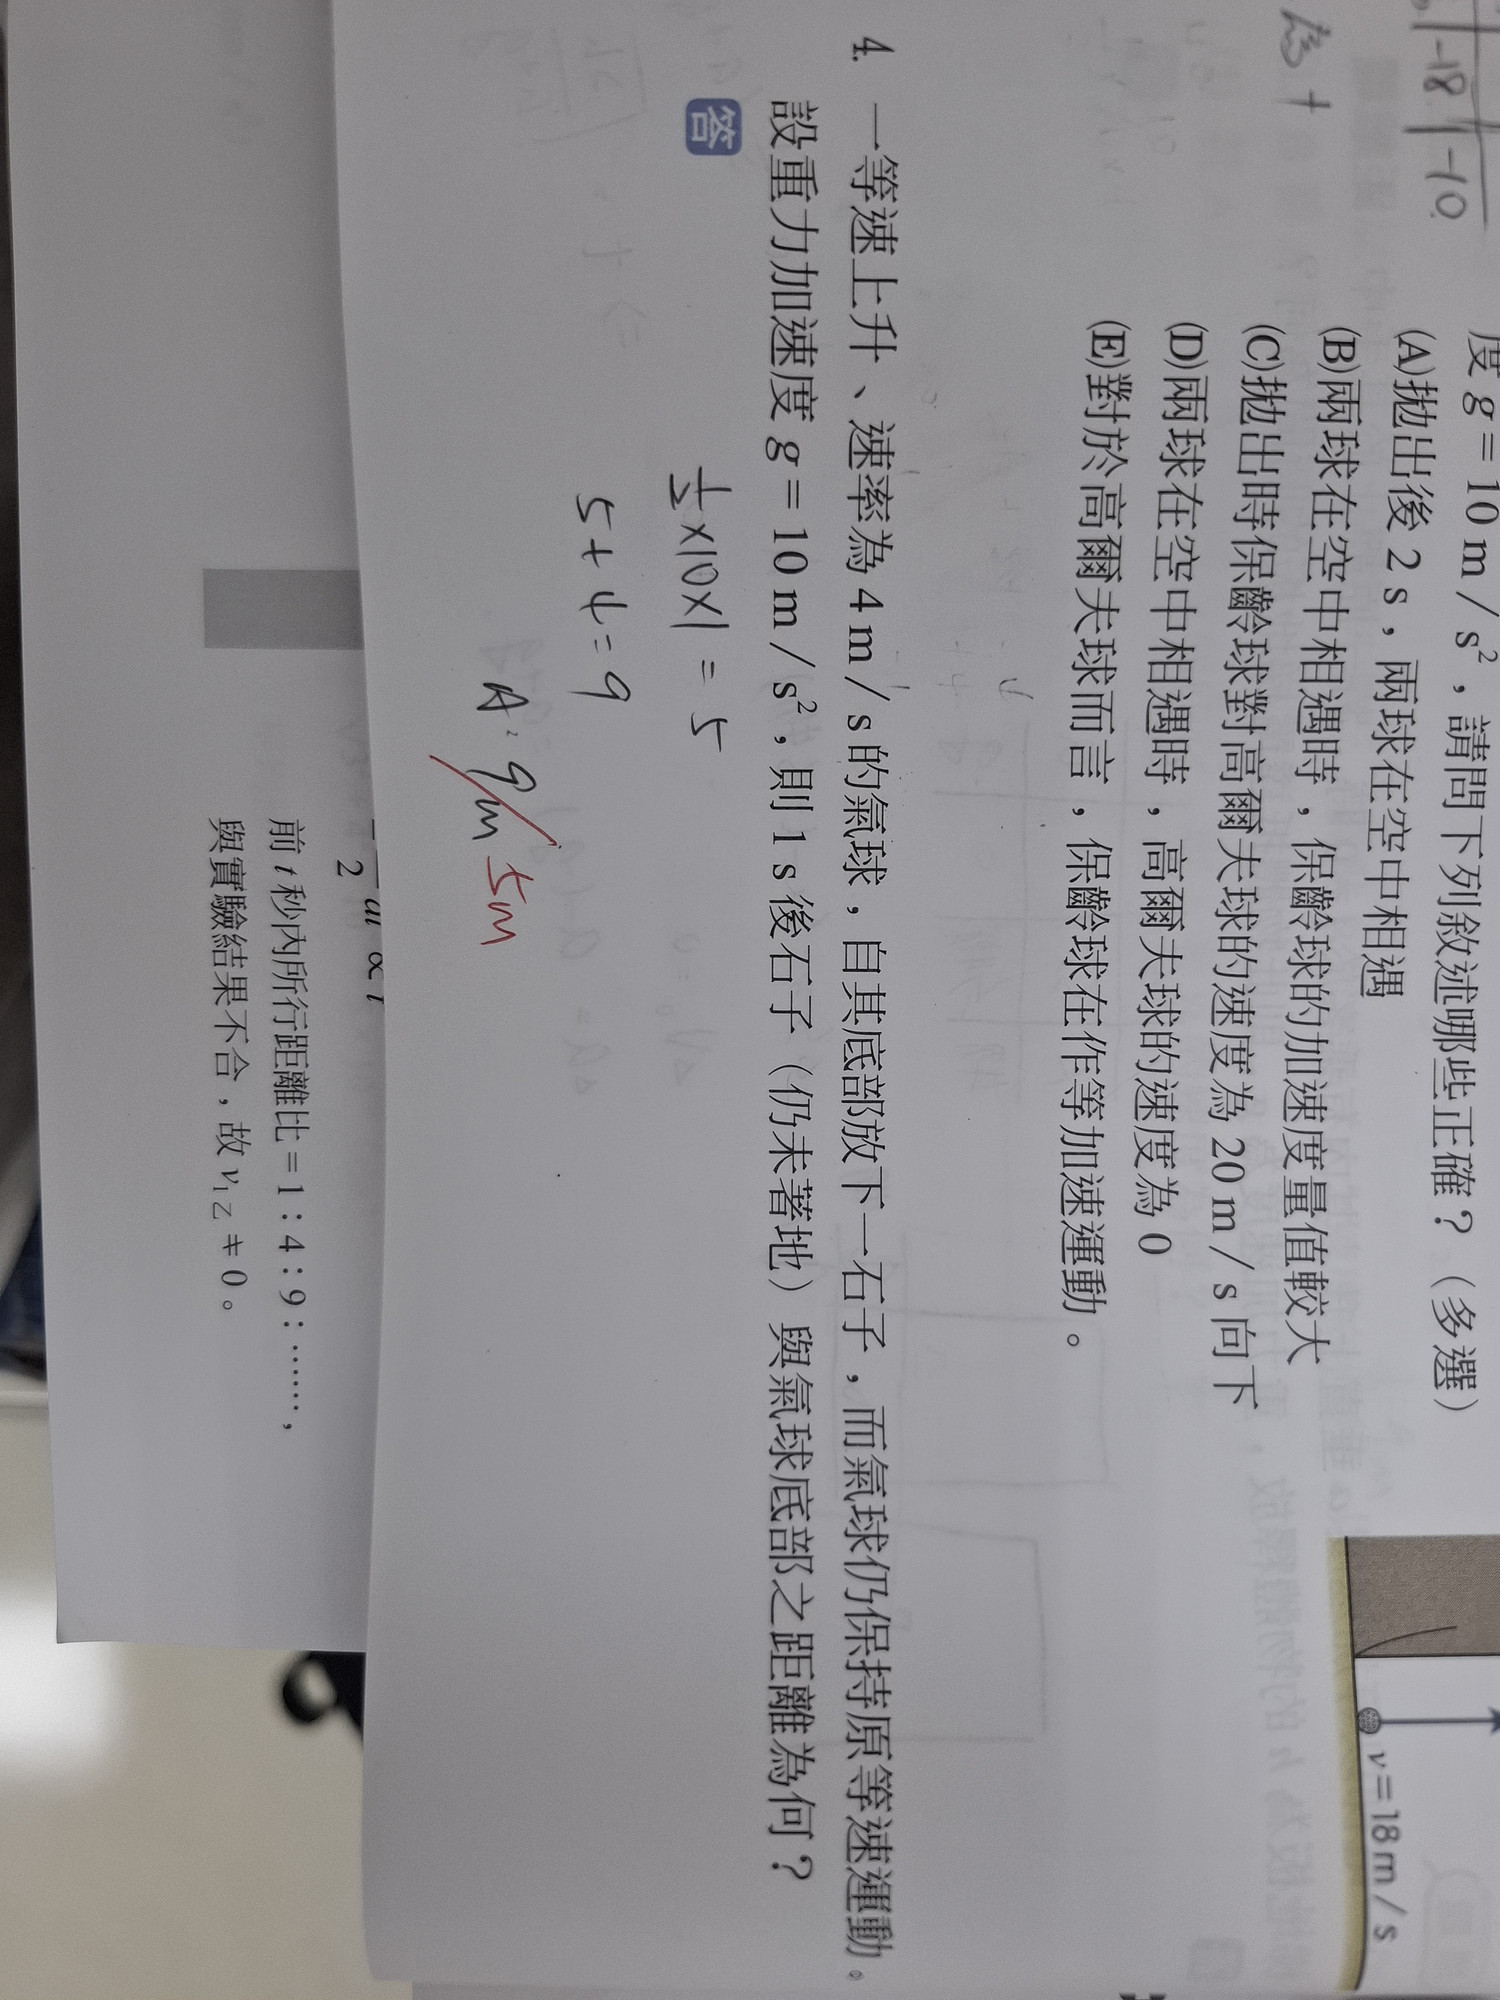 -18 -10
為 +
度 g = 10 m / s²，請問下列敘述哪些正確？（多選）
(A)拋出後 2 s，兩球在空中相遇
(B)兩球在空中相遇時，保齡球的加速度量值較大
(C)拋出時保齡球對高爾夫球的速度為 20 m / s 向下
(D)兩球在空中相遇時，高爾夫球的速度為 0
(E)對於高爾夫球而言，保齡球在作等加速運動。
v = 18 m / s
4. 一等速上升、速率為 4 m / s 的氣球，自其底部放下一石子，而氣球仍保持原等速運動。
設重力加速度 g = 10 m / s²，則 1 s 後石子（仍未著地）與氣球底部之距離為何？
答
½×10×1 = 5
5 + 4 = 9
A: 9m 5m
2
前 t 秒內所行距離比 = 1：4：9：……，
與實驗結果不合，故 v₁乙 ≠ 0。